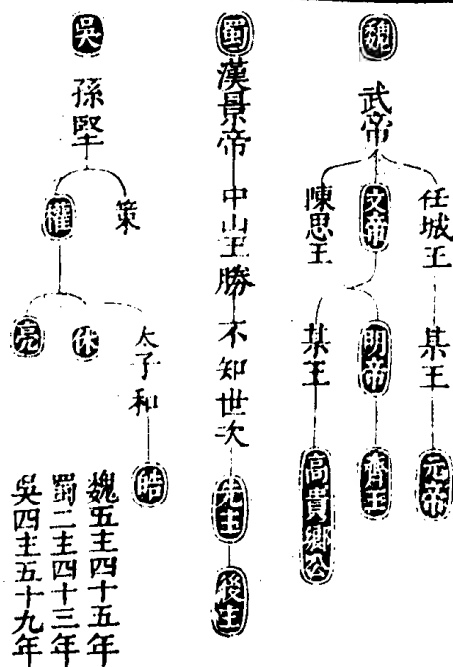 魏
武帝
任城王
某王
元帝
文帝
明帝
齊王
陳思王
某王
高貴鄉公
蜀
漢景帝
中山王勝
不知世次
先主
後主
吳
孫堅
策
權
太子和
皓
休
亮
魏五主四十五年
蜀二主四十三年
吳四主五十九年